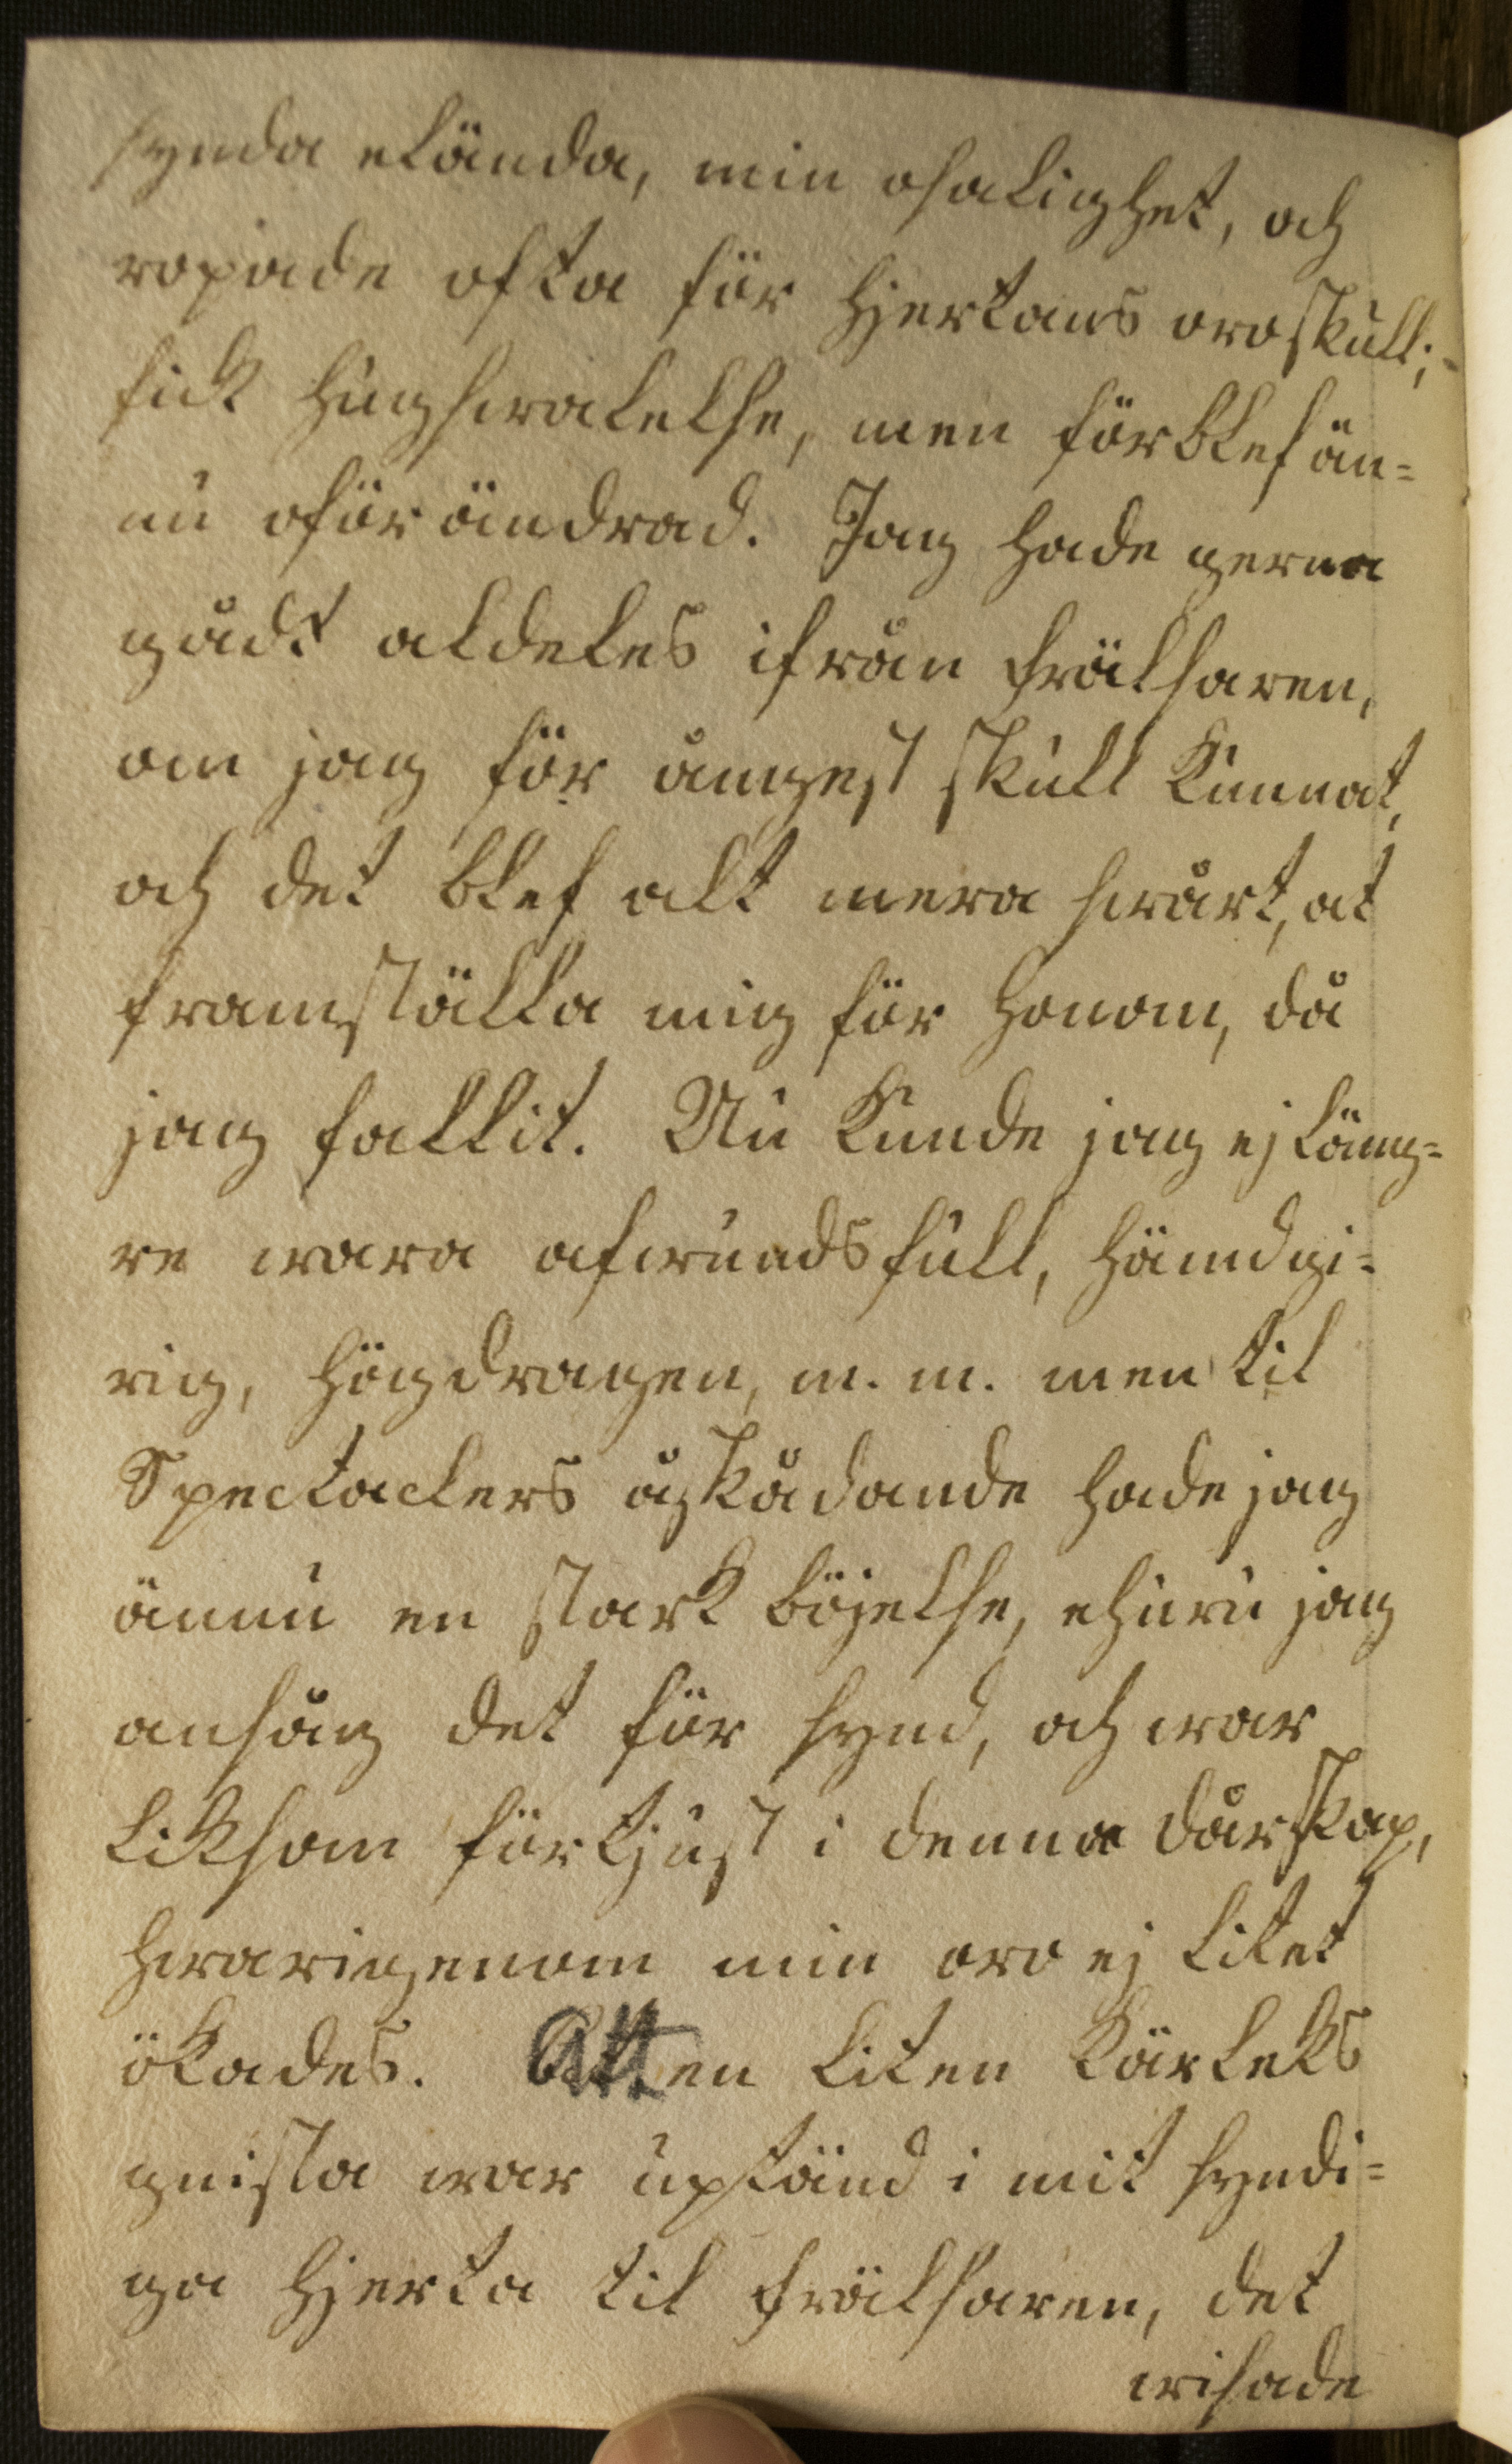 synda elända, min osalighet, och
ropade ofta för hjertans oro skull;
fick hugswalelse, men förblef än=
nu oförändrad. Jag hade gerna
gådt aldeles ifrån Frälsaren,
om jag för ångest skull kunnat,
och det blef alt mera swårt, at
framställa mig för honom, då
jag fallit. Nu kunde jag ej läng=
re wara afwundsfull, hämdgi=
rig, högdragen, m. m. men til
Spectaclers åskådande hade jag
ännu en stark böjelse, ehuru jag
ansåg det för synd, och war
liksom förtjust i denna dårskap,
hwarigenom min oro ej litet
ökades. Att en liten kärleks
gnista war uptänd i mit syndi=
ga hjerta til Frälsaren, det
wisade